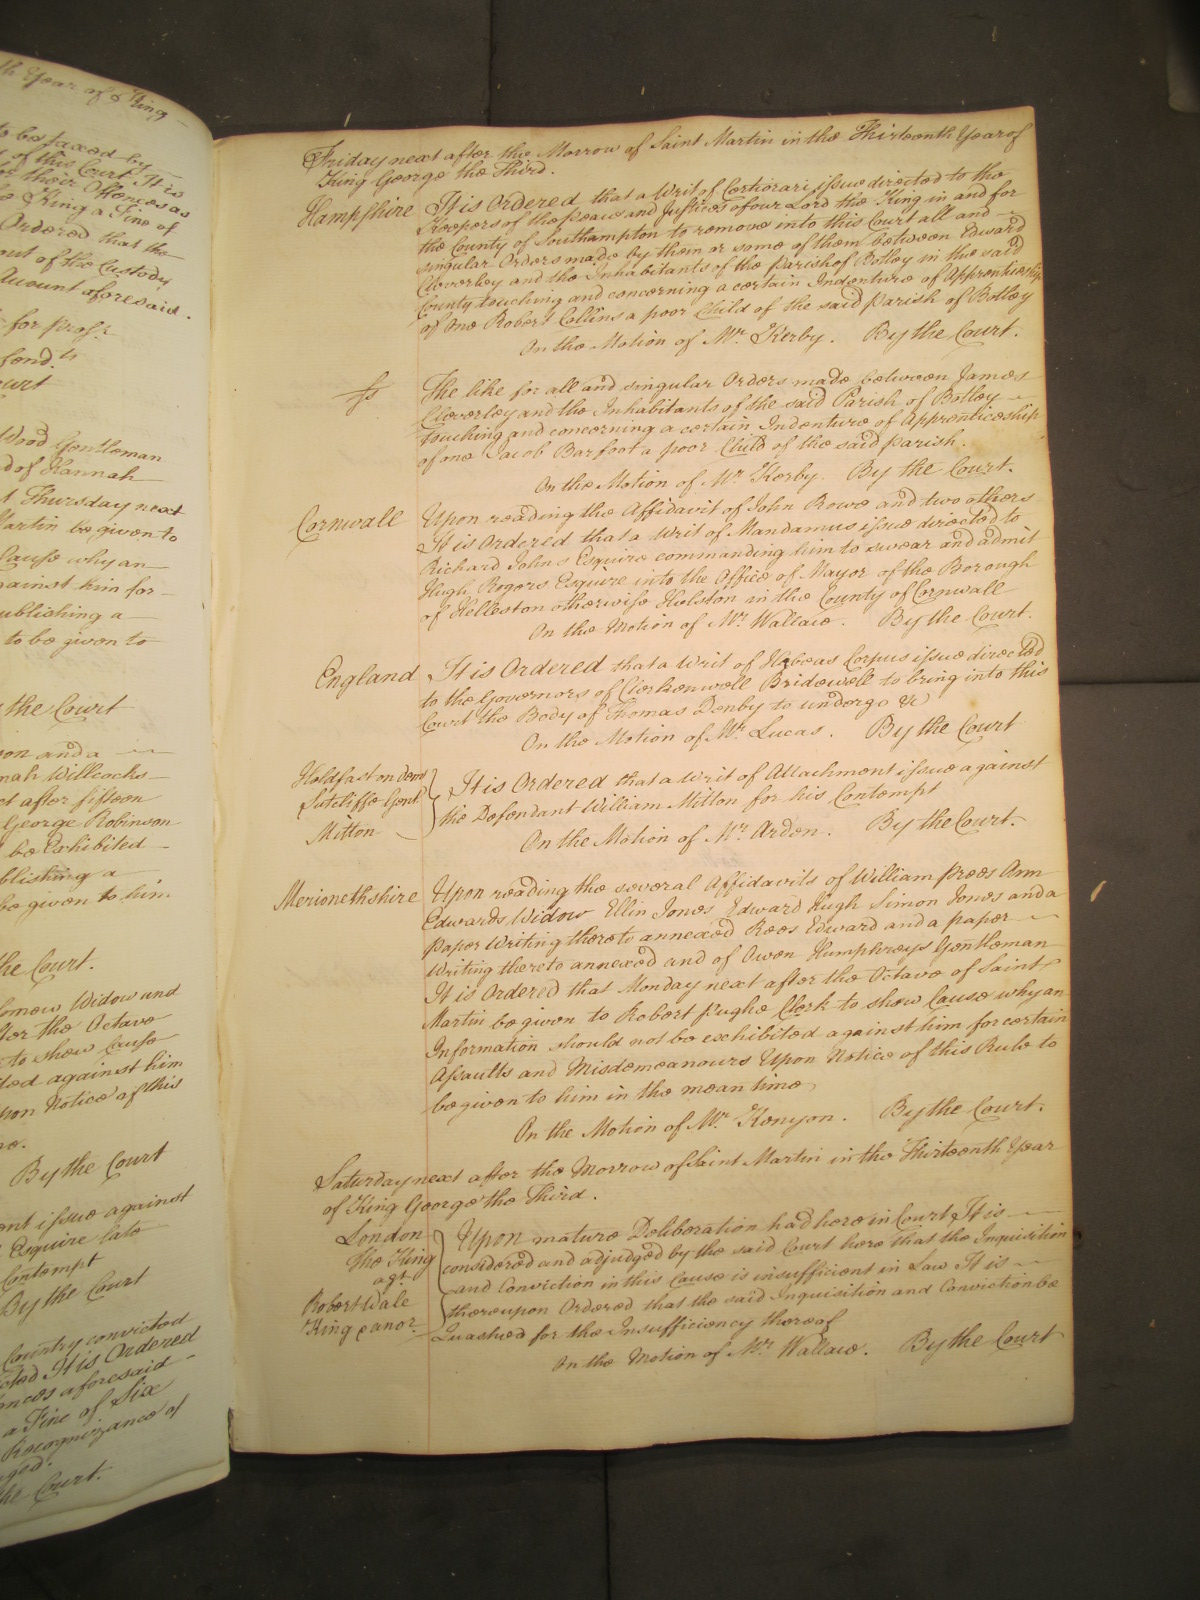 th Year of K King
to be taxed by
of this Court It is
for their Offences as
the King a Fine of
Ordered that the
out of the Custody
Account aforesaid.
for Pros.r
fend.ts
Court
Wood Gentleman
d of Hannah
t Thursday next
Martin be given to
Cause why an
gainst him for
ublishing a
to be given to
the Court
on and a
nah Willcocks
ct after fifteen
George Robinson
be Exhibited
blishing a
be given to him
the Court.
lomew Widow and
ter the Octave
to shew Cause
ted against him
pon Notice of this
me.
By the Court
ent issue against
Esquire late
Contempt
By the Court
Country convicted
cted It is Ordered
nces aforesaid
a Fine of Six
Recognizance of
ged.
the Court.
Friday next after the Morrow of Saint Martin in the Thirteenth Year of
King George the Third.
Hampshire It is Ordered that a Writ of Certiorari issue directed to the
Keepers of the peace and Justices of our Lord the King in and for
the County of Southampton to remove into this Court all and
singular Orders made by them or some of them between Edward
Cleverley and the Inhabitants of the parish of Botley in the said
County touching and concerning a certain Indenture of Apprenticeship
of one Robert Collins a poor Child of the said parish of Botley
On the Motion of Mr. Kerby. By the Court.
fs The like for all and singular Orders made between James
Cleverley and the Inhabitants of the said Parish of Botley
touching and concerning a certain Indenture of Apprenticeship
of one Jacob Barfoot a poor Child of the said parish.
On the Motion of Mr Kerby. By the Court.
Cornwall Upon reading the Affidavit of John Rowe and two others
It is Ordered that a Writ of Mandamus issue directed to
Richard Johns Esquire commanding him to swear and admit
Hugh Rogers Esquire into the Office of Mayor of the Borough
of Helleston otherwise Helston in the County of Cornwall
On the Motion of Mr. Wallace. By the Court.
England It is Ordered that a Writ of Habeas Corpus issue directed
to the Governors of Clerkenwell Bridewell to bring into this
Court the Body of Thomas Denby to undergo &c
On the Motion of Mr. Lucas. By the Court
Holdfast on Dem
Sutcliffe Gent.
Mitton
It is Ordered that a Writ of Attachment issue against
the Defendant William Mitton for his Contempt
On the Motion of Mr. Arden. By the Court.
Merionethshire Upon reading the several Affidavits of William Prees Ann
Edwards Widow Ellin Jones Edward Hugh Simon Jones and a
Paper Writing thereto annexed Rees Edward and a paper
Writing thereto annexed and of Owen Humphreys Gentleman
It is Ordered that Monday next after the Octave of Saint
Martin be given to Robert Pughe Clerk to shew Cause why an
Information should not be exhibited against him for certain
Assaults and Misdemeanours Upon Notice of this Rule to
be given to him in the mean time
On the Motion of Mr. Kenyon. By the Court.
Saturday next after the Morrow of Saint Martin in the Thirteenth Year
of King George the Third.
London
The King
agt.
Robert Wale
King & anor.
Upon mature Deliberation had here in Court It is
considered and adjudged by the said Court here that the Inquisition
and Conviction in this Cause is insufficient in Law It is
thereupon Ordered that the said Inquisition and Conviction be
Quashed for the Insufficiency thereof
On the Motion of Mr. Wallace. By the Court